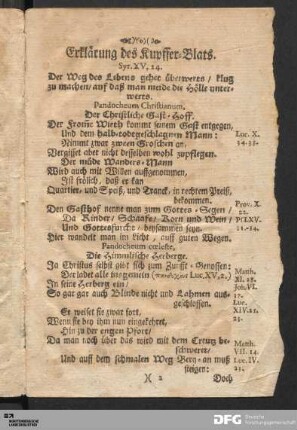 Erklärung des Kupffer-Blats.
Syr. XV, 24.
Der Weg des Lebens gehet überwerts / klug
zu machen / auf daß man meide die Hölle unter-
werts.
Pandocheum Christianum,
Der Christliche Gast-Hoff.
Der From̃e Wirth kom̃t seinem Gast entgegen,
Und dem halb-todtgeschlagnen Mann:
Luc. X.
Nimmt zwar zween Groschen an.
34-35.
Vergisset aber nicht desselben wohl zupflegen.
Der müde Wanders-Mann
Wird auch mit Willen aufgenommen,
Ist frölich, daß er kan
Quartier- und Speiß, und Tranck, in rechtem Preiß,
bekommen.
Den Gasthof nennt man zum Gottes-Segen /
Prov. X.
22.
Da Kinder / Schaafe / Korn und Wein /
Und Gottesfurcht / beysammen seyn.
Hier wandelt man im Licht / auff guten Wegen.
Pandocheum cœleste,
Die Himmlische Herberge.
Ja Christus selbst gibt sich zum Zunfft-Genossen:
Der ladet alle insgemein
Luc. XV, 2.
Matth.
XI. 28.
In seine Herberg ein /
Joh. VI.
So gar auch Blinde nicht und Lahmen aus-
geschlossen.
Luc.
XIV. 21.
Er weiset sie zwar fort,
Wenn sie bey ihm nun eingekehret,
Hin zu der engen Pfort /
Da man noch über das wird mit dem Creutz be-
schweret /
Matth.
VII. 14.
Und auff dem schmalen Weg Berg-an muß
Luc. IX.
23.
steigen:
X 2
Doch
DFG Deutsche
Forschungsgemeinschaft